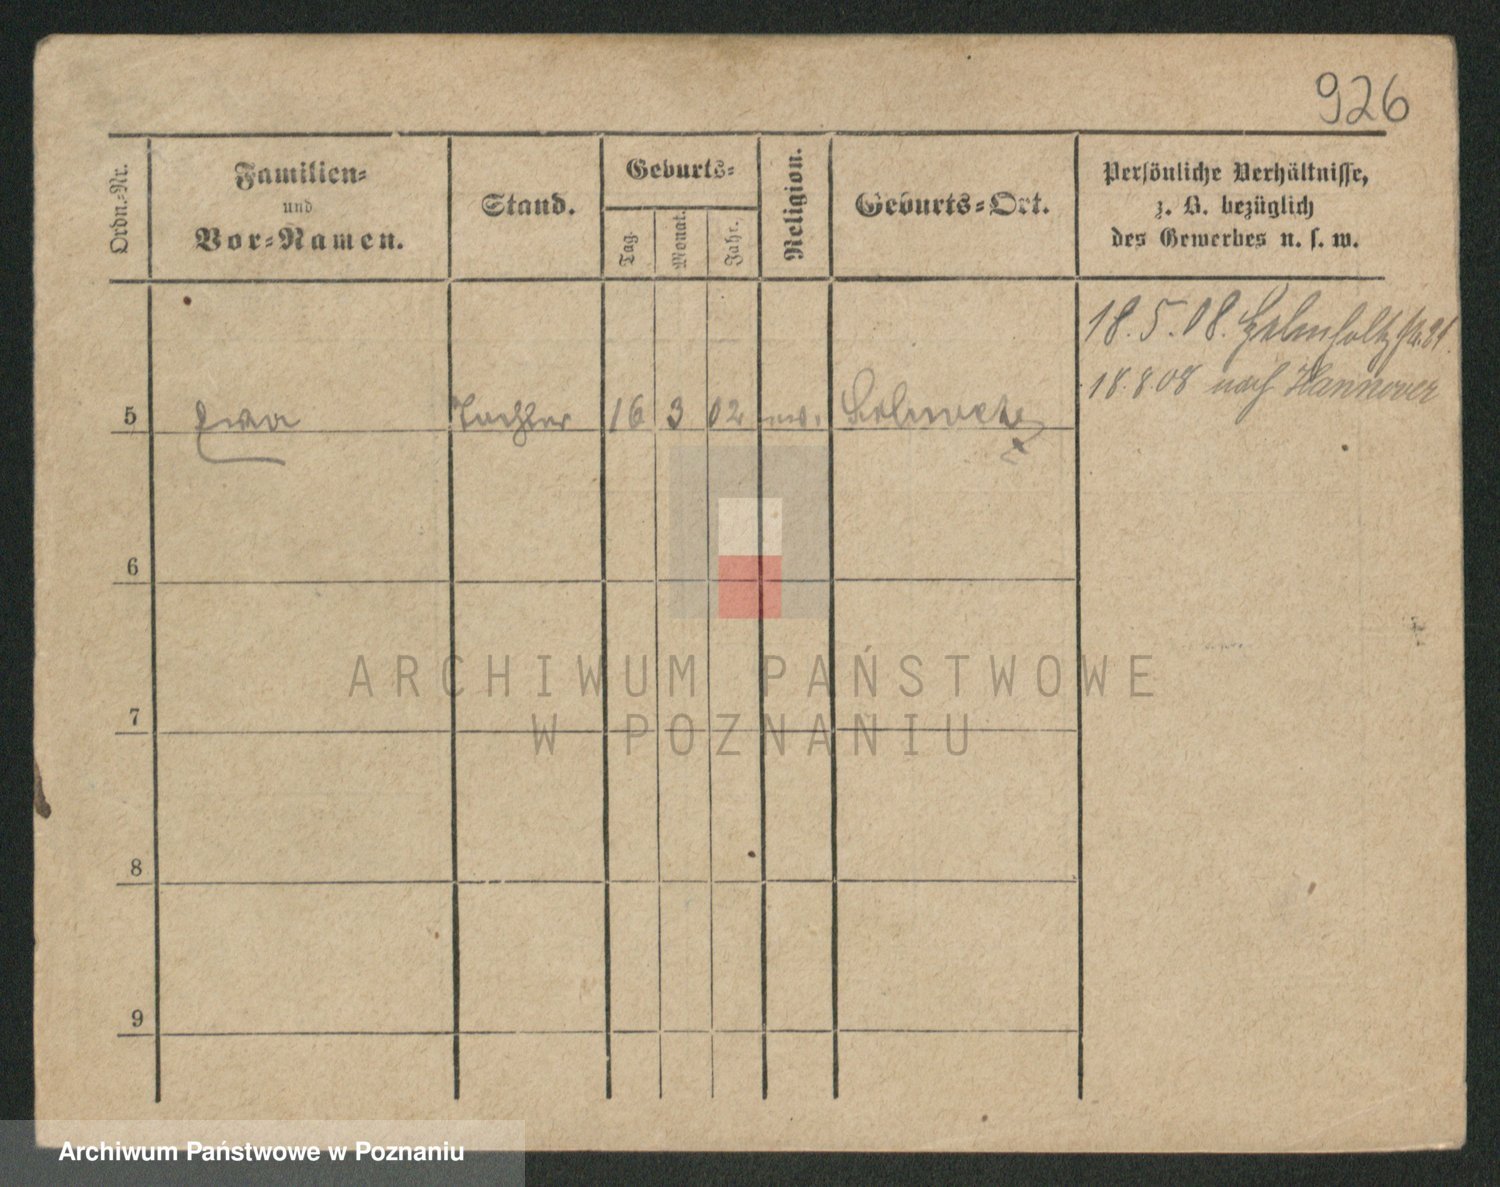 926
Ordn.-Nr.
Familien-
und
Vor-Namen.
Stand.
Geburts-
Tag.
Monat.
Jahr.
Religion.
Geburts-Ort.
Persönliche Verhältnisse,
z. B. bezüglich
des Gewerbes u. s. w.
18.5.08. Helmholtzstr. 21.
18.8.08 nach Hannover
5 Ewa Tochter 16 3 02
6
7
8
9
ARCHIWUM PAŃSTWOWE
W POZNANIU
Archiwum Państwowe w Poznaniu